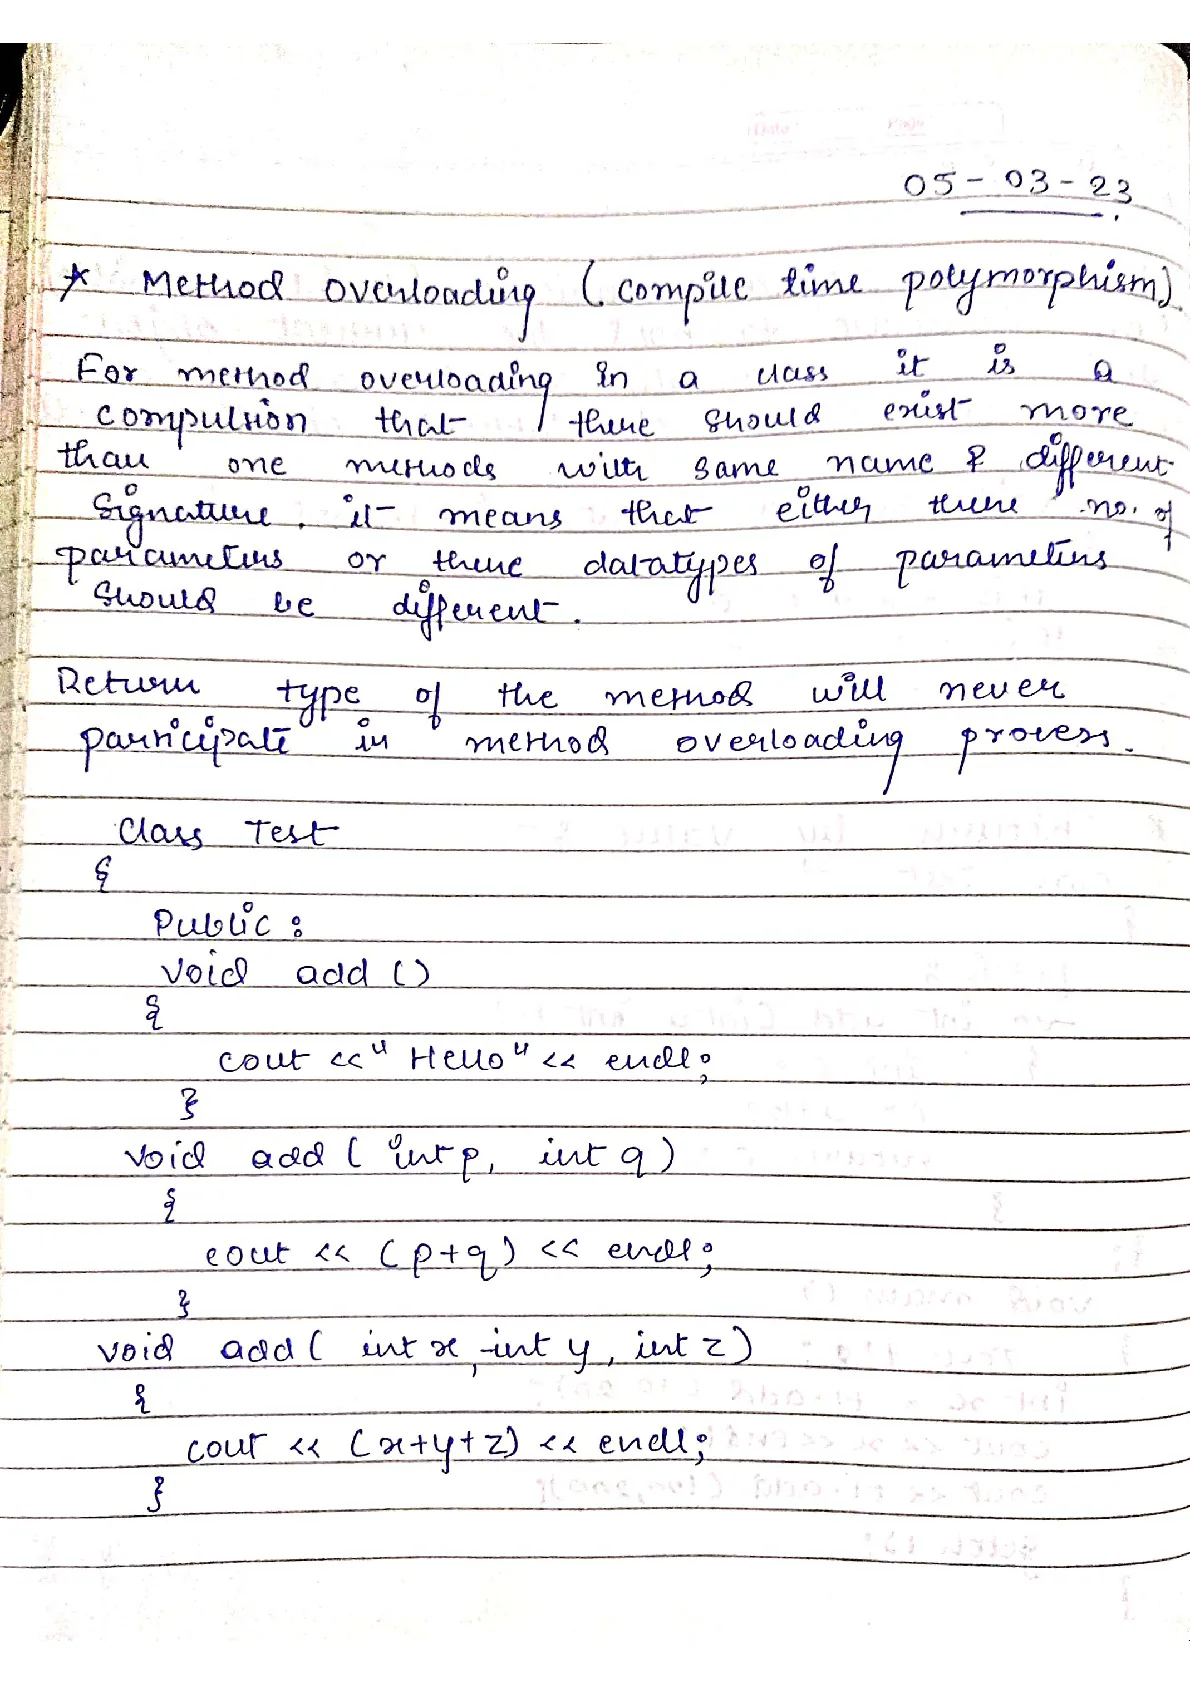 05-03-23
* Method overloading (compile time polymorphism)
For method overloading in a class it is a
compulsion that there should exist more
than one methods with same name & different
Signature. it means that either there no. of
parameters or there datatypes of parameters
Should be different.
Return type of the method will never
participate in method overloading process.
Class Test
{
Public:
void add ()
{
cout <<" Hello" << endl;
}
void add ( int p, int q )
{
cout << (p+q) << endl;
}
void add ( int x, int y, int z)
{
cout << (x+y+z) << endl;
}